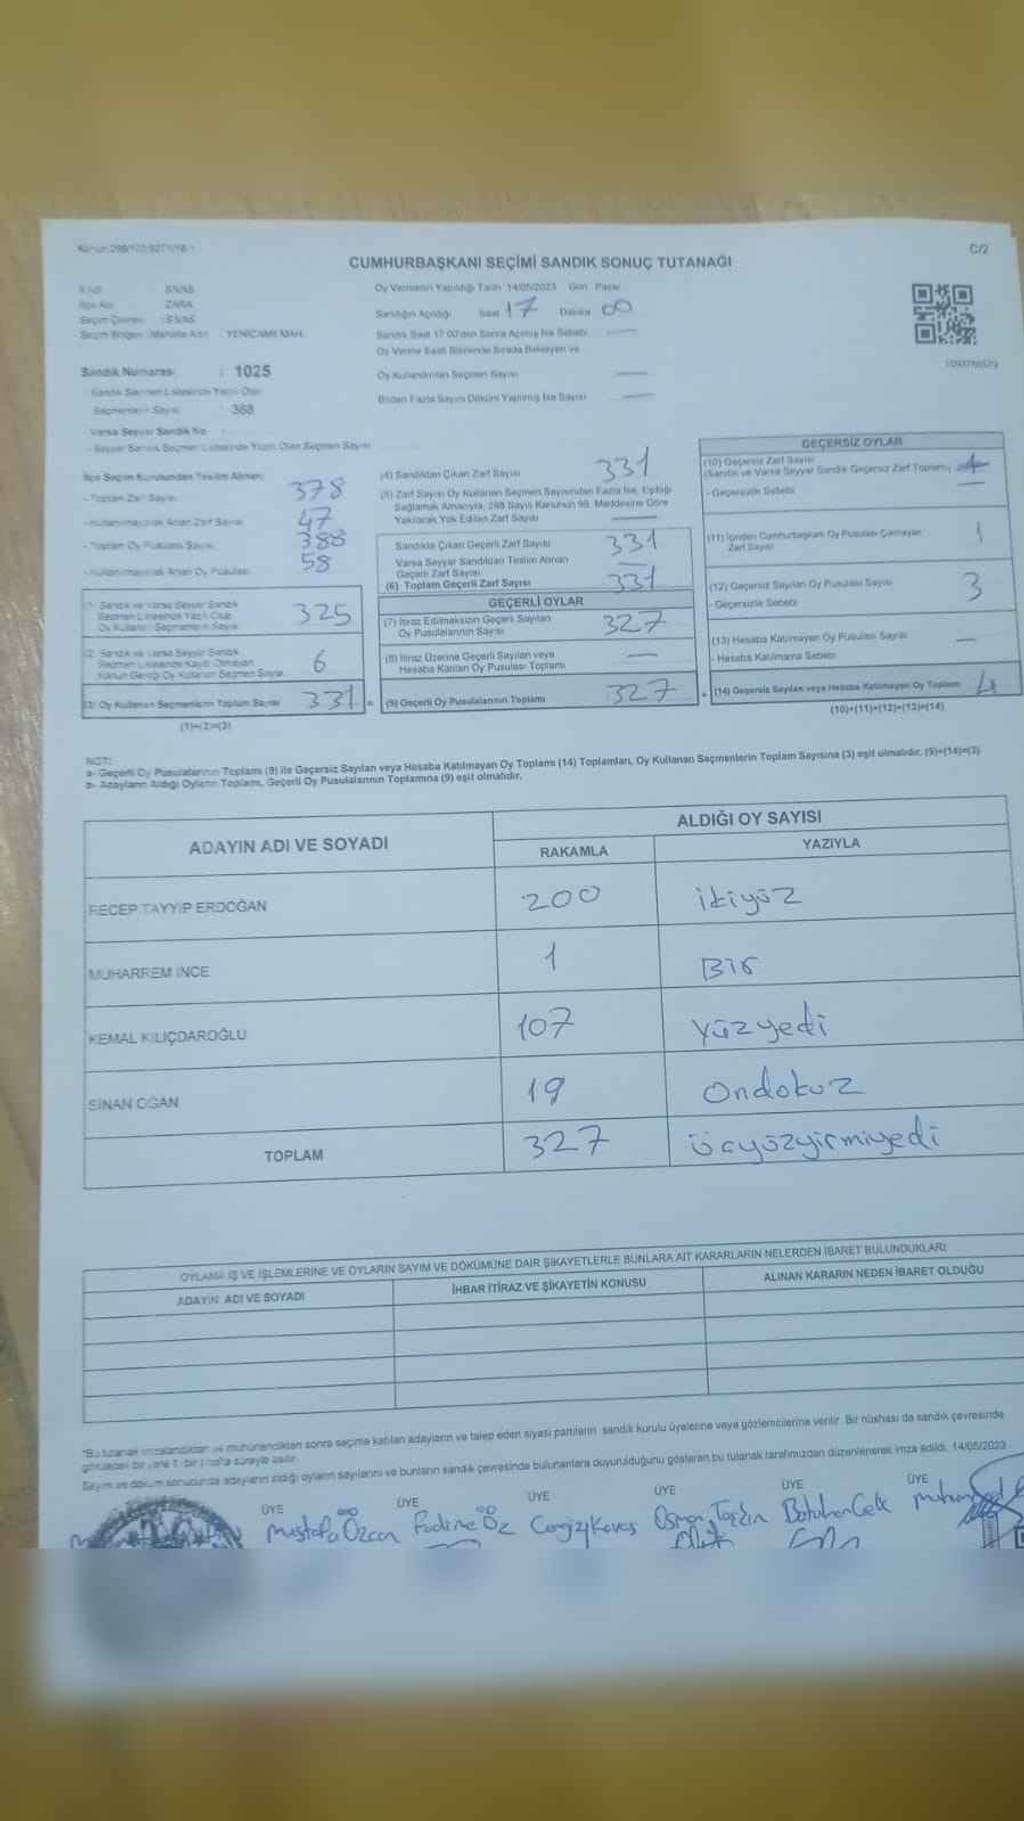 C/2
CUMHURBAŞKANI SEÇİMİ SANDIK SONUÇ TUTANAĞI
İli Adı : SİVAS
İlçe Adı : ZARA
Seçim Çevresi : SİVAS
Seçim Bölgesi (Mahalle Adı) : YENİCAMİ MAH.
Sandık Numarası : 1025
Sandık Seçmen Listesinde Yazılı Olan
Seçmenlerin Sayısı : 368
Varsa Seyyar Sandık No
- Seyyar Sandık Seçmen Listesinde Yazılı Olan Seçmen Sayısı
Oy Vermenin Yapıldığı Tarih 14/05/2023 Gün Pazar
Sandığın Açıldığı Saat 17 Dakika 00
Sandık Saat 17.00'den Sonra Açılmış İse Sebebi
Oy Verme Saati Bitiminde Sırada Bekleyen ve
Oy Kullandırılan Seçmen Sayısı
Birden Fazla Sayım Döküm Yapılmış İse Sayısı
İlçe Seçim Kurulundan Teslim Alınan;
- Toplam Zarf Sayısı 378
- Kullanılmayarak Artan Zarf Sayısı 47
- Toplam Oy Pusulası Sayısı 388
- Kullanılmayarak Artan Oy Pusulası 58
(1) Sandık ve Varsa Seyyar Sandık
Seçmen Listesinde Yazılı Olup
Oy Kullanan Seçmenlerin Sayısı 325
(2) Sandık ve Varsa Seyyar Sandık
Seçmen Listesinde Kayıtlı Olmayan
Kanun Gereği Oy Kullanan Seçmen Sayısı 6
(3) Oy Kullanan Seçmenlerin Toplam Sayısı 331 =
(1)+(2)=(3)
(4) Sandıktan Çıkan Zarf Sayısı 331
(5) Zarf Sayısı Oy Kullanan Seçmen Sayısından Fazla İse, Eşitliği
Sağlamak Amacıyla, 298 Sayılı Kanunun 98. Maddesine Göre
Yakılarak Yok Edilen Zarf Sayısı
Sandıkta Çıkan Geçerli Zarf Sayısı 331
Varsa Seyyar Sandıktan Teslim Alınan
Geçerli Zarf Sayısı
(6) Toplam Geçerli Zarf Sayısı 331
GEÇERLİ OYLAR
(7) İtiraz Edilmeksizin Geçerli Sayılan
Oy Pusulalarının Sayısı 327
(8) İtiraz Üzerine Geçerli Sayılan veya
Hesaba Katılan Oy Pusulası Toplamı
(9) Geçerli Oy Pusulalarının Toplamı 327 +
GEÇERSİZ OYLAR
(10) Geçersiz Zarf Sayısı
(Sandık ve Varsa Seyyar Sandık Geçersiz Zarf Toplamı)
- Geçersizlik Sebebi
(11) İçinden Cumhurbaşkanı Oy Pusulası Çıkmayan
Zarf Sayısı 1
(12) Geçersiz Sayılan Oy Pusulası Sayısı 3
- Geçersizlik Sebebi
(13) Hesaba Katılmayan Oy Pusulası Sayısı
- Hesaba Katılmama Sebebi
(14) Geçersiz Sayılan veya Hesaba Katılmayan Oy Toplamı 4
(10)+(11)+(12)+(13)=(14)
NOT:
a- Geçerli Oy Pusulalarının Toplamı (9) ile Geçersiz Sayılan veya Hesaba Katılmayan Oy Toplamı (14) Toplamları, Oy Kullanan Seçmenlerin Toplam Sayısına (3) eşit olmalıdır. (9)+(14)=(3)
b- Adayların Aldığı Oyların Toplamı, Geçerli Oy Pusulalarının Toplamına (9) eşit olmalıdır.
ADAYIN ADI VE SOYADI
ALDIĞI OY SAYISI
RAKAMLA YAZIYLA
RECEP TAYYİP ERDOĞAN 200 ikiyüz
MUHARREM İNCE 1 Bir
KEMAL KILIÇDAROĞLU 107 Yüzyedi
SİNAN OĞAN 19 Ondokuz
TOPLAM 327 üçyüzyirmiyedi
OYLAMA İŞ VE İŞLEMLERİNE VE OYLARIN SAYIM VE DÖKÜMÜNE DAİR ŞİKAYETLERLE BUNLARA AİT KARARLARIN NELERDEN İBARET BULUNDUKLARI
ADAYIN ADI VE SOYADI İHBAR İTİRAZ VE ŞİKAYETİN KONUSU ALINAN KARARIN NEDEN İBARET OLDUĞU
*Bu tutanak imzalandıktan ve mühürlendikten sonra seçime katılan adayların ve talep eden siyasi partilerin sandık kurulu üyelerine veya gözlemcilerine verilir. Bir nüshası da sandık çevresinde
görülecek bir yere 1 (bir) hafta süreyle asılır.
Sayım ve döküm sonucunda adayların aldığı oyların sayılarını ve bunların sandık çevresinde bulunanlara duyurulduğunu gösteren bu tutanak tarafımızdan düzenlenerek imza edildi. 14/05/2023
ÜYE ÜYE ÜYE ÜYE ÜYE ÜYE
Mustafa Özcan Fadime Öz Cengiz Kavas Osman Taşkın Batuhan Celk